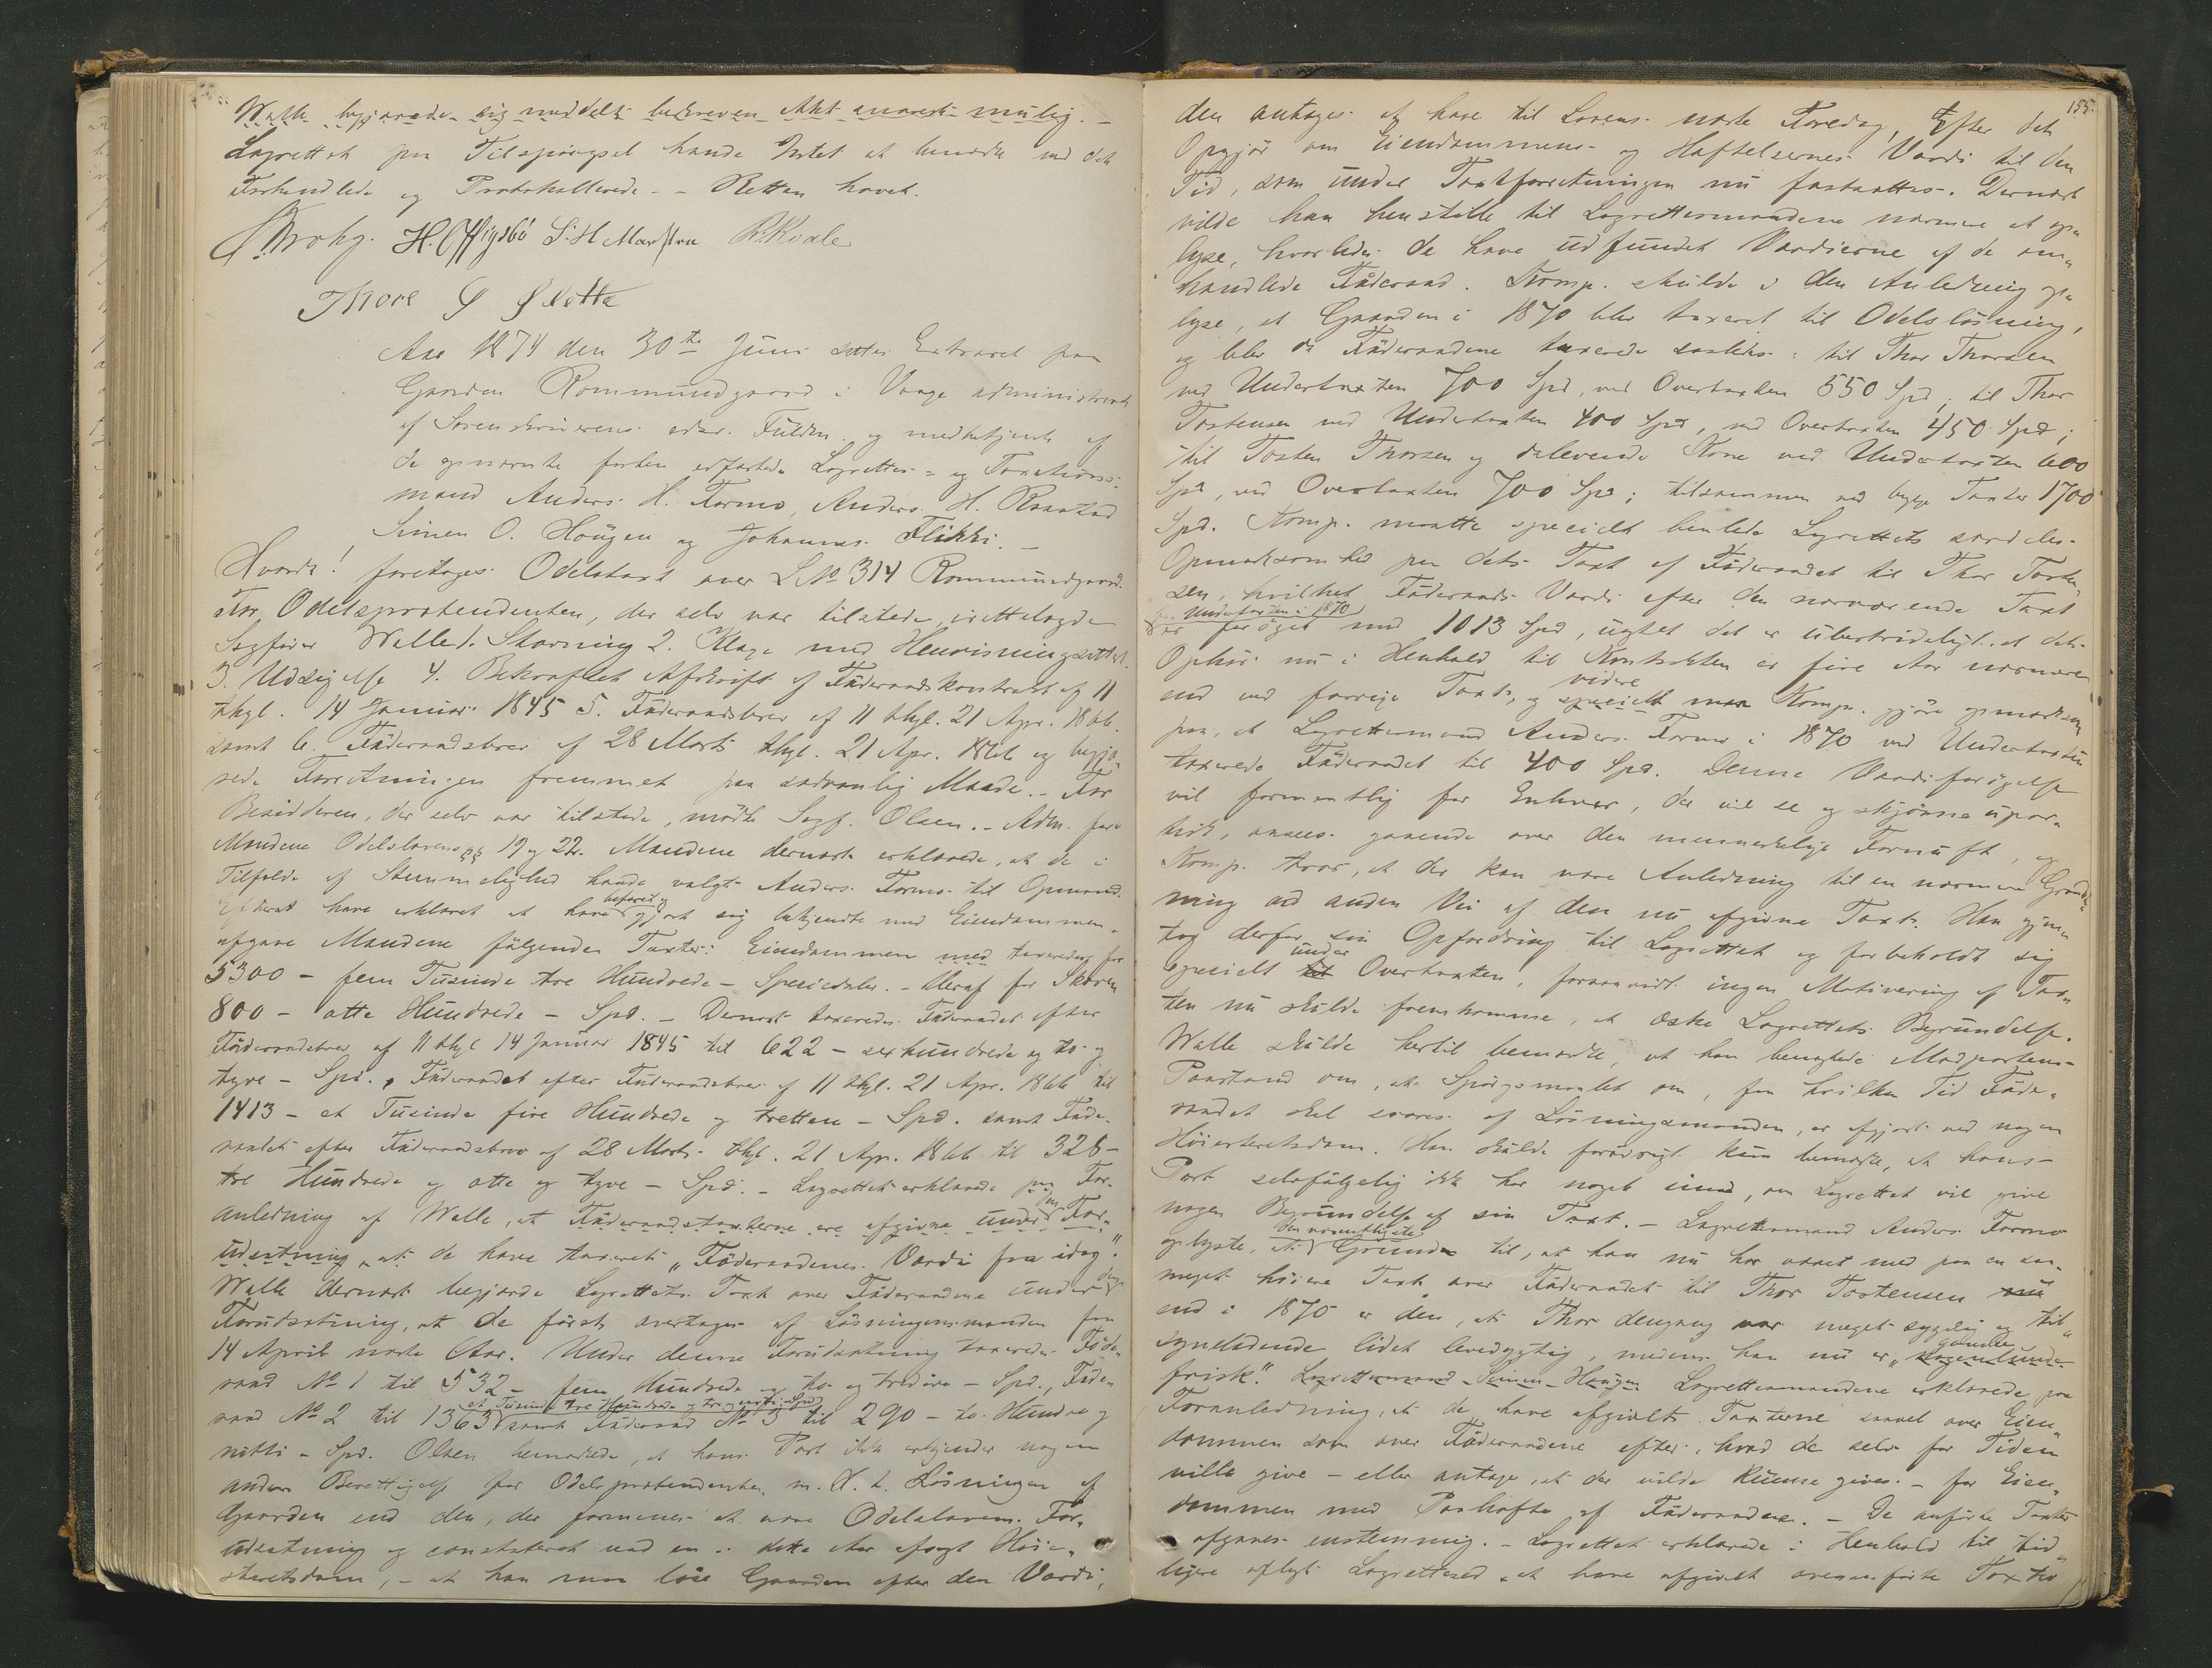 Walle begjærede sig meddelt beskreven Akt snarest mulig. –
Lagrettet paa Tilspørgsel havde Intet at bemærke ved det
Forhandlede og Protokollerede. – Retten hævet.
H. Offigsbø S. H. Marstein R. Kvale
Thore G Slette
Aar 1874 den 30te Juni sattes Extraret paa
Gaarden Rommundgaard i Vaage administreret
af Sorenskriverens edsv. Fuldm. og medbetjent af
de opnævnte forhen edfæstede Lagrettes- og Taxations-
mænd Anders H. Formo, Anders H. Raastad
Simen O. Haugen og Johannes Flikki. –
Hvorda! foretoges Odelstaxt over L No 314 Rommundgaard.
For Odelsprætendenten, der selv var tilstede, irettelagde
Sagfører Walle 1. Stævning 2. Klage med Henvisningsattest.
3. Udsigelse 4. Bekræftet Afskrift af Føderaadskontrakt af 11
thgl. 14 Januar 1845 5. Føderaadsbrev af 11 thgl. 21 Apr. 1866
samt 6. Føderaadsbrev af 28 Marts thgl. 21 Apr. 1866 og begjæ-
rede Forretningen fremmet paa sædvanlig Maade. – For
Besidderen, der selv var tilstede, mødte Sagf. Olsen. – Adm. fore
Mændene Odelslovens §§ 19 og 22. Mændene dernæst erklærede, at de i
Tilfælde af Stemmelighed havde valgt Anders Formo til Opmand.
Efterat have erklæret at have befaret og gjort sig bekjendte med Eiendommen
afgave Mændene følgende Taxter: Eiendommen med taxeredes for
5300 – fem Tusinde tre Hundrede – Speciedaler. – Heraf for Skoven
800 – otte Hundrede – Spd. – Dernæst taxeredes Føderaadet efter
Føderaadsbrev af 11 thgl 14 Januar 1845 til 622 – sexhundrede og to og
tyve – Spd., Føderaadet efter Føderaadsbrev af 11 thgl. 21 Apr. 1866 til
1413 – et Tusinde fire Hundrede og tretten – Spd. samt Føde-
raadet efter Føderaadsbrev af 28 Marts thgl. 21 Apr. 1866 til 328 –
tre Hundrede og otte og tyve – Spd. – Lagrettet erklærede paa For-
anledning af Walle, at Føderaadstaxterne ere afgivne under den For-
udsætning, at de have taxeret „Føderaadenes Værdi fra idag."
Walle dernæst begjærede Lagrettets Taxt over Føderaadene under den
Forudsætning, at de først overtages af Løsningsmanden fra
14 April næste Aar. Under denne Forudsætning taxeredes Føde-
raad No 1 til 532 – fem Hundrede og to og tredive – Spd., Føde-
raad No 2 til 1363 et Tusinde tre Hundrede og tre og sexti – Spd samt Føderaad No 3 til 290 – to Hundre og
nitti – Spd. Olsen bemærkede, at hans Part ikke erkjender nogen
anden Berettigelse for Odelsprætendenten m. H. t. Løsningen af
Gaarden end den, der formenes at være Odelslovens For-
udsætning og constateret ved en i dette Aar afsagt Høie-
steretsdom, – at han maa løse Gaarden efter den Værdi,
155.
den antages at have til Lovens næste Faredag, efter det
Opgjør om Eiendommens og Heftelsernes Værdi til den
Tid, som under Taxtforretningen nu fastsættes. Dernæst
vilde han henstille til Lagrettesmændene nærmere at op-
lyse, hvorledes de have udfundet Værdierne af de om-
handlede Føderaad. Komp. skulde i den Anledning op-
lyse, at Gaarden i 1870 blev taxeret til Odelsløsning,
og blev da Føderaadene taxerede saaledes: til Thor Thorsen
ved Undertaxten 700 Spd, ved Overtaxten 550 Spd; til Thor
Tostensen ved Undertaxten 400 Spd, ved Overtaxten 450 Spd;
til Tosten Thorsen og dalevende Kone ved Undertaxten 600
Spd, ved Overtaxten 700 Spd; tilsammen ved begge Taxter 1700
Spd. Komp. maatte specielt henlede Lagrettets særdeles
Opmærksomhed paa dets Taxt af Føderaadet til Thor Tosten-
sen, hvilket Føderaads Værdi efter den nærværende Taxt
er fra Undertaxten i 1870 forøget med 1013 Spd, uagtet det er ubestrideligt, at dets
Ophør nu i Henhold til Kontrakten er fire Aar nærmere
end ved forrige Taxt, og videre maa Komp. gjøre opmærksom
paa, at Lagrettesmand Anders Formo i 1870 ved Undertaxten
taxerede Føderaadet til 400 Spd. Denne Værdiforøgelse
vil formentlig for Enhver, der vil se og skjønne upar-
tisk, ansees gaaende over den menneskelige Fornuft, og
Komp. tror, at der kan være Anledning til en nærmere Grandsk-
ning ad anden Vei af den nu afgivne Taxt. Han gjen-
tog derfor sin Opfordring til Lagrettet og forbeholdt sig
specielt under Overtaxten, forsaavidt ingen Motivering af Tax-
ten nu skulde fremkomme, at æske Lagrettets Begrundelse.
Walle skulde hertil bemærke, at han benegtede Modpartens
Paastand om, at Spørgsmaalet om, fra hvilken Tid Føde-
raadet skal svares af Løsningsmanden, er afgjort ved nogen
Høiesteretsdom. Han skulde forøvrigt kun bemærke, at hans
Part selvfølgelig ikke har noget imod, om Lagrettet vil give
nogen Begrundelse af sin Taxt. – Lagrettesmand Anders Formo
oplyste, at den væsentligste Grund til, at han nu har været med paa en saa
meget høiere Taxt over Føderaadet til Thor Tostensen
end i 1870 er den, at Thor dengang var meget sygelig og til-
syneladende lidet levedygtig, medens han nu er „ganske
frisk." Lagrettesmand Simen Haugen Lagrettesmændene erklærede paa
Foranledning, at de have afgivet Taxterne saavel over Eien-
dommen som over Føderaadene efter, hvad de selv for Tiden
ville give – eller antage, at der vilde kunne gives – for Eien-
dommen med Paahefte af Føderaadene. – De anførte Taxter
afgaves enstemmig. – Lagrettet erklærede i Henhold til tid-
ligere aflagt Lagrettesed at have afgivet ovenanførte Taxter